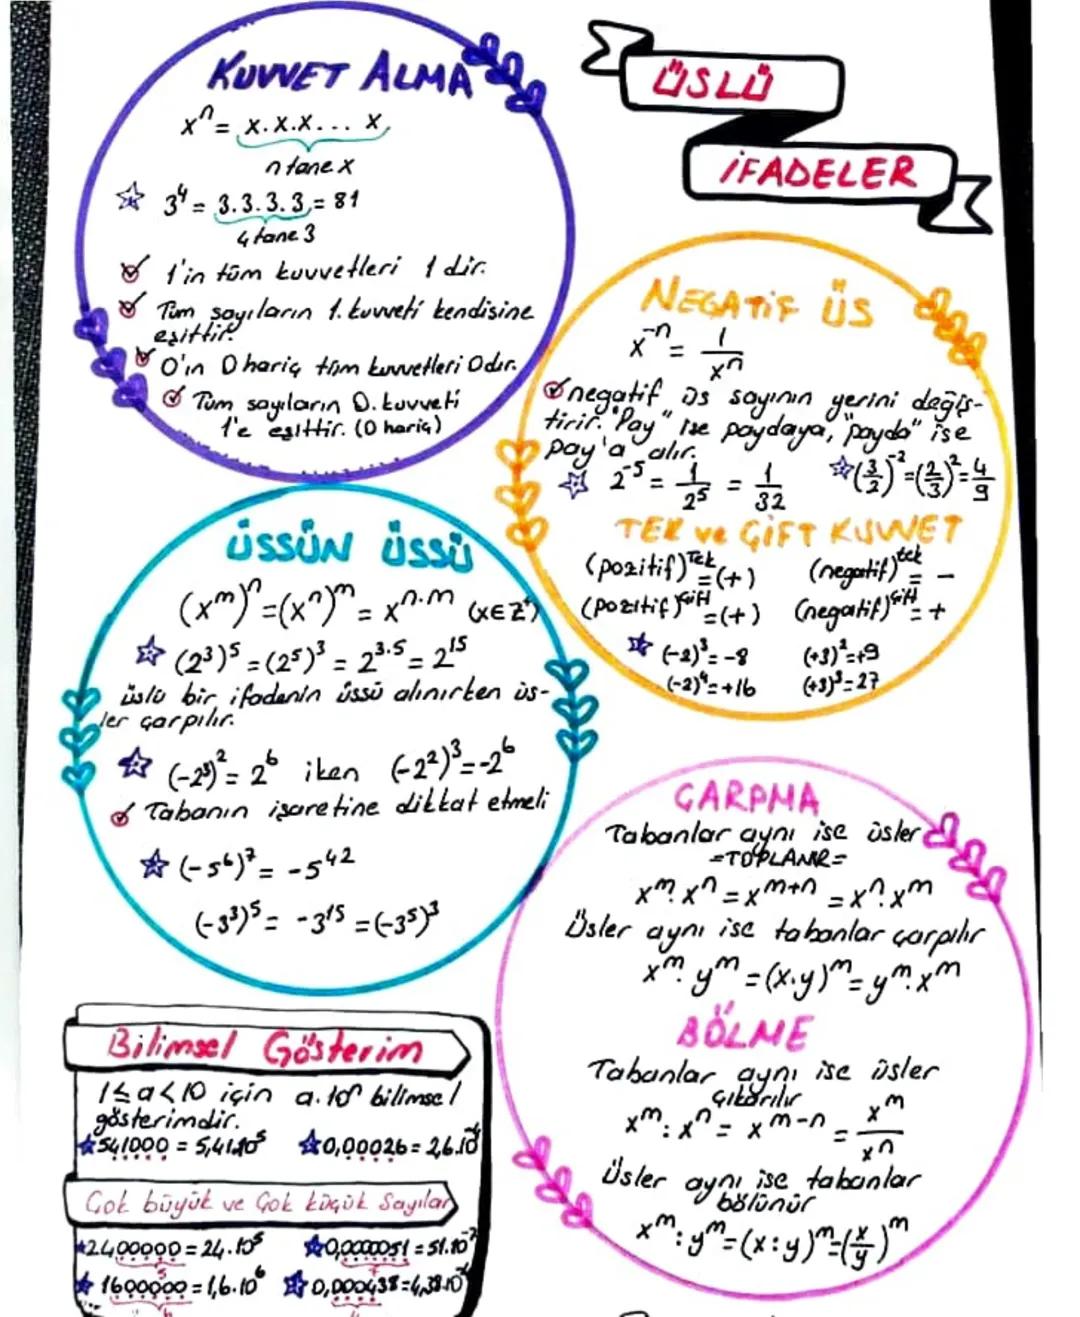 ÜSLÜ
İFADELER
KUVVET ALMA
xⁿ = x.x.x... x
n tane x
3⁴ = 3.3.3.3 = 81
4 tane 3
1'in tüm kuvvetleri 1 dir.
Tüm sayıların 1. kuvveti kendisine
eşittir.
0'ın 0 hariç tüm kuvvetleri 0dır.
Tüm sayıların 0. kuvveti
1'e eşittir. (0 hariç)
NEGATİF ÜS
x⁻ⁿ = 1/xⁿ
negatif üs sayının yerini değiş-
tirir. "Pay" ise paydaya, "payda" ise
pay'a alır.
2⁻⁵ = 1/2⁵ = 1/32 (3/2)⁻² = (2/3)² = 4/9
TEK ve ÇİFT KUVVET
(pozitif)ᵀᵉᵏ = (+) (negatif)ᵗᵉᵏ = -
(pozitif)ᶜ̧ⁱᶠᵗ = (+) (negatif)ᶜ̧ⁱᶠᵗ = +
(-2)³ = -8 (+3)² = +9
(-2)⁴ = +16 (+3)³ = 27
ÜSSÜN ÜSSÜ
(xᵐ)ⁿ = (xⁿ)ᵐ = xⁿ·ᵐ (x∈Z⁺)
(2³)⁵ = (2⁵)³ = 2³·⁵ = 2¹⁵
üslü bir ifadenin üssü alınırken üs-
ler çarpılır.
(-2³)² = 2⁶ iken (-2²)³ = -2⁶
Tabanın işaretine dikkat etmeli
(-5⁶)⁷ = -5⁴²
(-3³)⁵ = -3¹⁵ = (-3⁵)³
ÇARPMA
Tabanlar aynı ise üsler
=TOPLANIR=
xᵐ.xⁿ = xᵐ⁺ⁿ = xⁿ.xᵐ
Üsler aynı ise tabanlar çarpılır
xᵐ.yᵐ = (x.y)ᵐ = yᵐ.xᵐ
BÖLME
Tabanlar aynı ise üsler
çıkarılır
xᵐ : xⁿ = xᵐ⁻ⁿ = xᵐ/xⁿ
Üsler aynı ise tabanlar
bölünür
xᵐ : yᵐ = (x : y)ᵐ = (x/y)ᵐ
Bilimsel Gösterim
1 ≤ a < 10 için a.10ⁿ bilimsel
gösterimdir.
541000 = 5,41.10⁵ 0,00026 = 2,6.10⁻⁴
Çok büyük ve Çok küçük Sayılar
2400000 = 24.10⁵ 0,0000051 = 51.10⁻⁷
5 7
1600000 = 1,6.10⁶ 0,000438 = 4,38.10⁻⁴